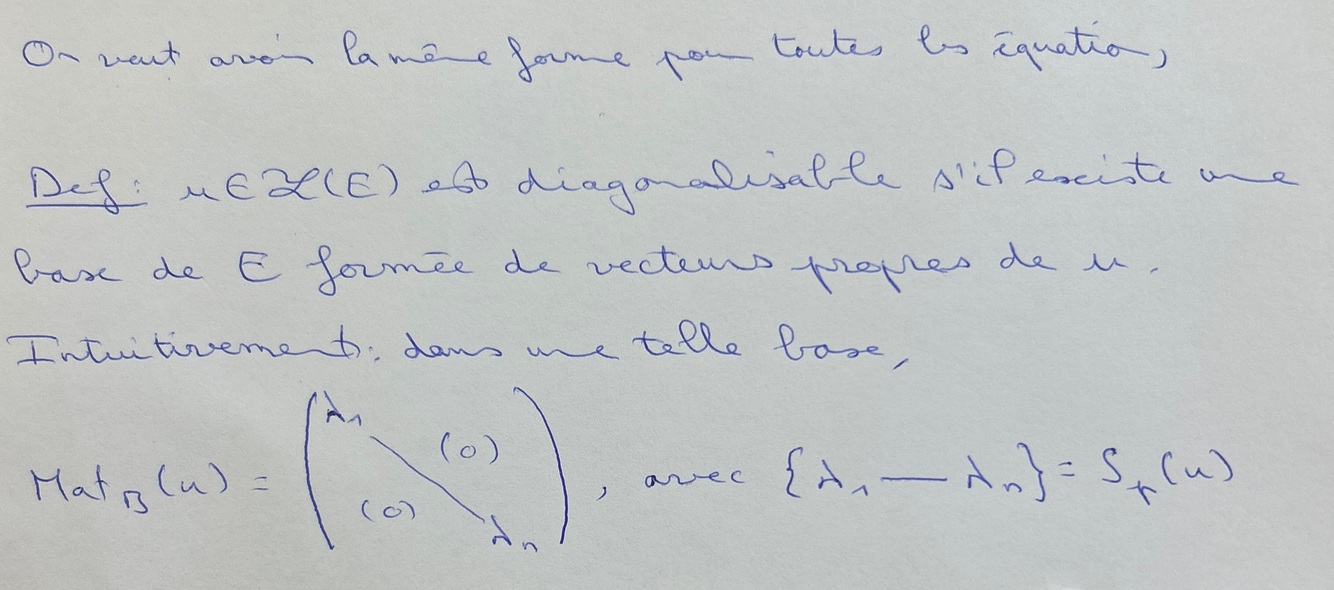 On veut avoir la même forme pour toutes les équation,
Def: u ∈ ℒ(E) est diagonalisable s'il existe une
base de E formée de vecteurs propres de u.
Intuitivement: dans une telle base,
Mat_B(u) = (λ₁ (0) (0) λₙ), avec {λ₁ — λₙ} = Sp(u)